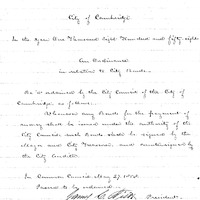 City of Cambridge
In the year One Thousand eight Hundred and fifty eight
An Ordinance
in relation to City Bonds.
Be it ordained by the City Council of the City of
Cambridge as follows.
Whenever any Bonds for the payment of
money shall be issued under the authority of the
City Council, such Bonds shall be signed by the
Mayor and City Treasurer, and countersigned by
the City Auditor.
In Common Council May 27, 1858.
Passed to be ordained.
James C.
President.